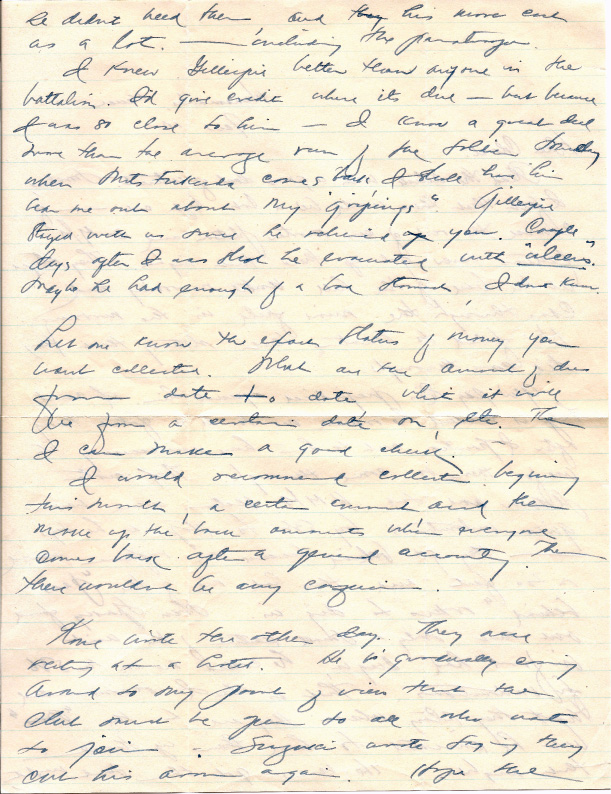 he didn't need them and they his more
as a lot. — including the
I knew Gillespie better than anyone in the
battalion. I'd give credit where its due — but because
I was so close to him — I know a great deal
more than the average run of the soldier. Someday
when Mits Fukuda comes back I shall have him
hear me out about my "gripings". Gillespie
stayed with us since he relieved you. Couple
days after I was shot he evacuated with "ulcers".
Maybe he had enough of a bad stomach, I don't know.
Let me know the exact status of money you
want collected. What are the amount of dues
from date to date, what it will
be from a certain date on, etc. Then
I can make a good check.
I would recommend collection beginning
this month, a certain amount and then
make up the back amounts when everyone
comes back after a general accounting. Then
there wouldn't be any confusion.
Kome wrote the other day. They were
resting at a hotel. He is gradually coming
around to my point of view that the
club must be open to all who wants
to join. Suzuki wrote saying they
cut his arm again. Hope the